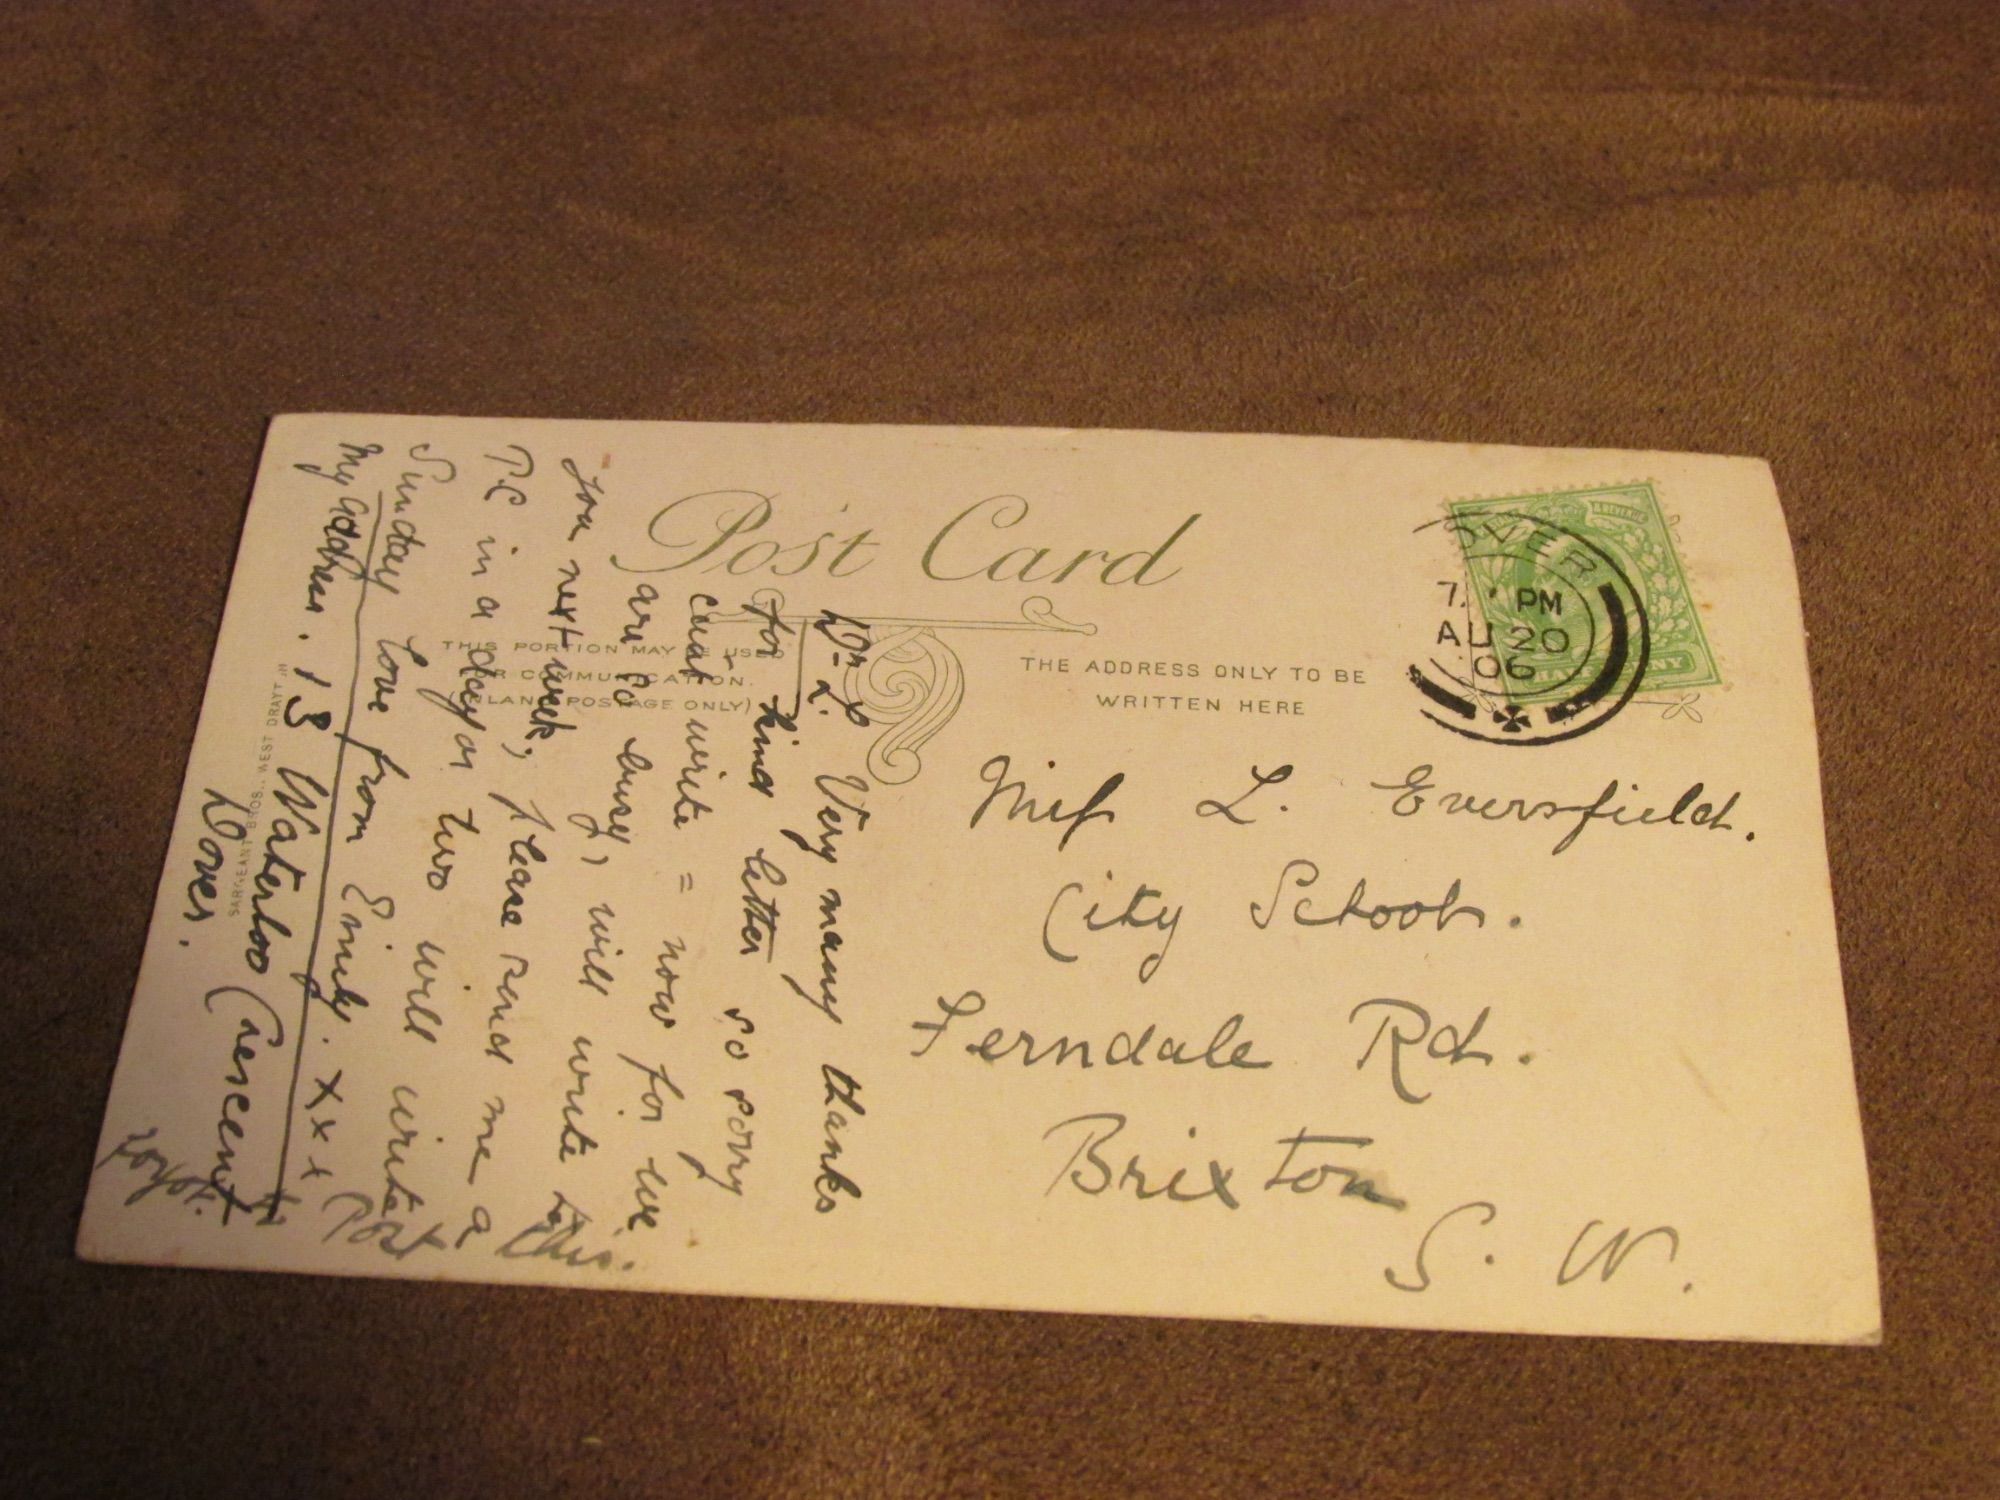 Post Card
THIS PORTION MAY BE USED
FOR COMMUNICATION.
(INLAND POSTAGE ONLY)
THE ADDRESS ONLY TO BE
WRITTEN HERE
OVER
7. PM
AU 20
06
HALFPENNY
Miss L. Eversfield.
City School.
Ferndale Rd.
Brixton
S. W.
Dr L. Very many thanks
for kind letter so sorry
cant write = now for we
are so busy, will write to
you next week, please send me a
P.C in a day or two will write
Sunday love from Emily. xxx
My address. 13 Waterloo Crescent
Dover.
Post
this.
SARGEANT BROS., WEST DRAYT'N